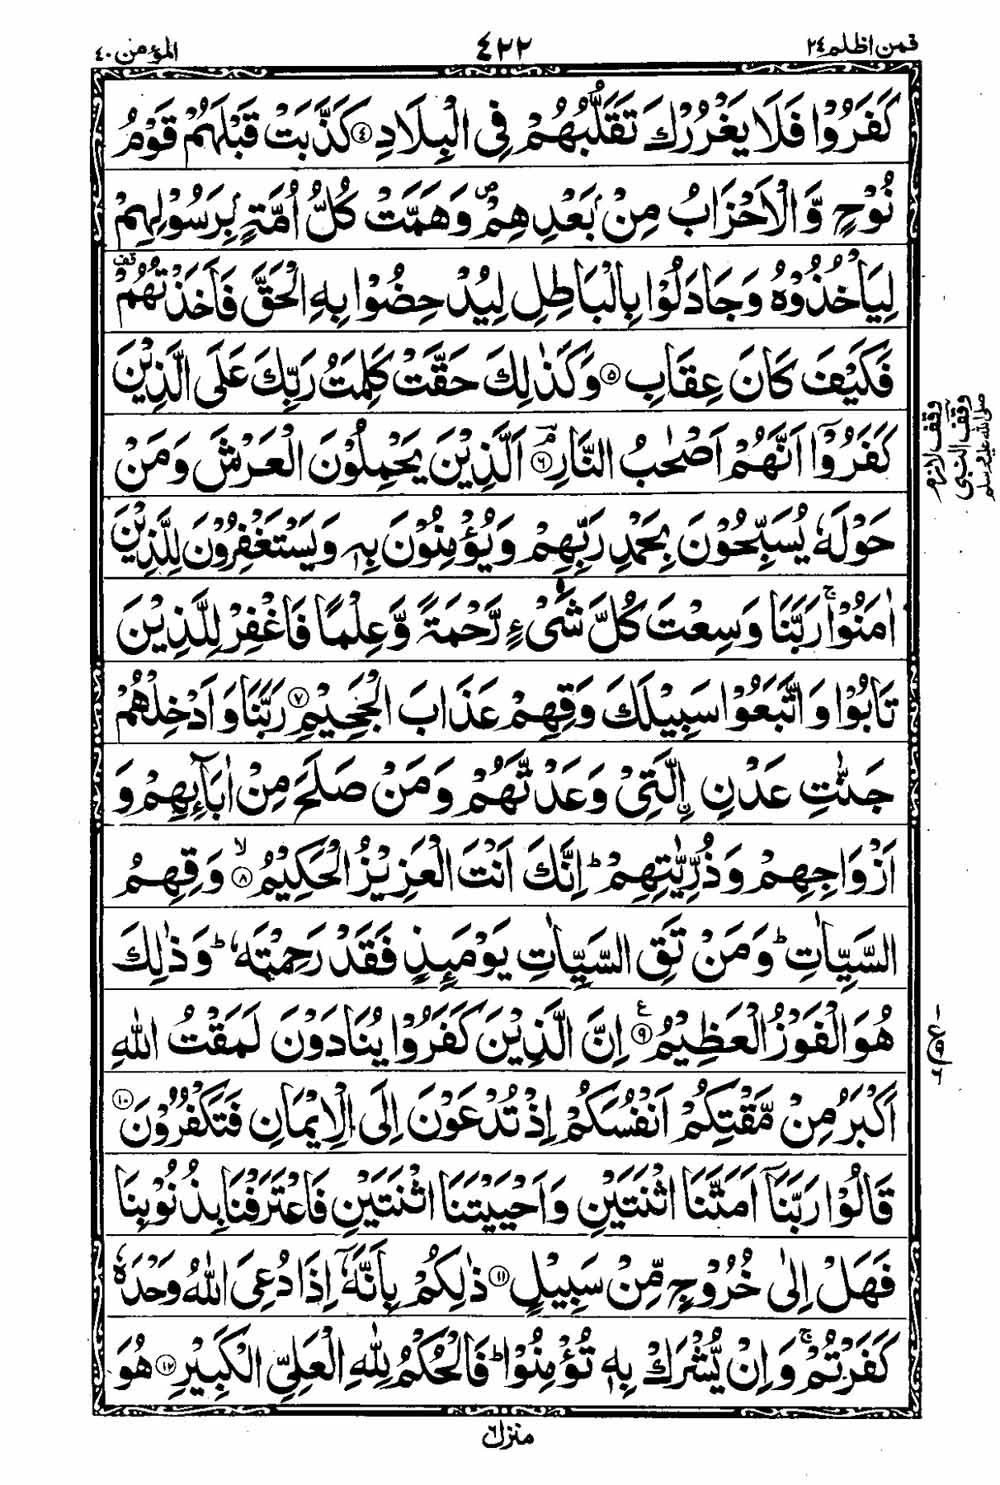 فمن اظلم ٢٤ ٤٢٢ المؤمن ٤٠
كَفَرُوْا فَلَا يَغْرُرْكَ تَقَلُّبُهُمْ فِى الْبِلَادِ ۴ كَذَّبَتْ قَبْلَهُمْ قَوْمُ
نُوْحٍ وَّالْاَحْزَابُ مِنْۢ بَعْدِهِمْ ۪ وَهَمَّتْ كُلُّ اُمَّةٍۭ بِرَسُوْلِهِمْ
لِيَاْخُذُوْهُ وَجَادَلُوْا بِالْبَاطِلِ لِيُدْحِضُوْا بِهِ الْحَقَّ فَاَخَذْتُهُمْ قف
فَكَيْفَ كَانَ عِقَابِ ۵ وَكَذٰلِكَ حَقَّتْ كَلِمَتُ رَبِّكَ عَلَى الَّذِيْنَ
كَفَرُوْۤا اَنَّهُمْ اَصْحٰبُ النَّارِ ۘ ۶ اَلَّذِيْنَ يَحْمِلُوْنَ الْعَرْشَ وَمَنْ
وقف لازم
وقف النبى
صلى الله عليه وسلم
حَوْلَهٗ يُسَبِّحُوْنَ بِحَمْدِ رَبِّهِمْ وَيُؤْمِنُوْنَ بِهٖ وَيَسْتَغْفِرُوْنَ لِلَّذِيْنَ
اٰمَنُوْا ۚ رَبَّنَا وَسِعْتَ كُلَّ شَىْءٍ رَّحْمَةً وَّعِلْمًا فَاغْفِرْ لِلَّذِيْنَ
تَابُوْا وَاتَّبَعُوْا سَبِيْلَكَ وَقِهِمْ عَذَابَ الْجَحِيْمِ ۷ رَبَّنَا وَاَدْخِلْهُمْ
جَنّٰتِ عَدْنِ ِۨالَّتِىْ وَعَدْتَّهُمْ وَمَنْ صَلَحَ مِنْ اٰبَآئِهِمْ وَ
اَزْوَاجِهِمْ وَذُرِّيّٰتِهِمْ ؕ اِنَّكَ اَنْتَ الْعَزِيْزُ الْحَكِيْمُ ۙ ۸ وَقِهِمُ
السَّيِّاٰتِ ؕ وَمَنْ تَقِ السَّيِّاٰتِ يَوْمَئِذٍ فَقَدْ رَحِمْتَهٗ ؕ وَذٰلِكَ
هُوَ الْفَوْزُ الْعَظِيْمُ ۹ ع اِنَّ الَّذِيْنَ كَفَرُوْا يُنَادَوْنَ لَمَقْتُ اللّٰهِ
اَكْبَرُ مِنْ مَّقْتِكُمْ اَنْفُسَكُمْ اِذْ تُدْعَوْنَ اِلَى الْاِيْمَانِ فَتَكْفُرُوْنَ ۱۰
قَالُوْا رَبَّنَاۤ اَمَتَّنَا اثْنَتَيْنِ وَاَحْيَيْتَنَا اثْنَتَيْنِ فَاعْتَرَفْنَا بِذُنُوْبِنَا
فَهَلْ اِلٰى خُرُوْجٍ مِّنْ سَبِيْلٍ ۱۱ ذٰلِكُمْ بِاَنَّهٗۤ اِذَا دُعِىَ اللّٰهُ وَحْدَهٗ
كَفَرْتُمْ ۚ وَاِنْ يُّشْرَكْ بِهٖ تُؤْمِنُوْا ؕ فَالْحُكْمُ لِلّٰهِ الْعَلِىِّ الْكَبِيْرِ ۱۲ هُوَ
منزل ٦